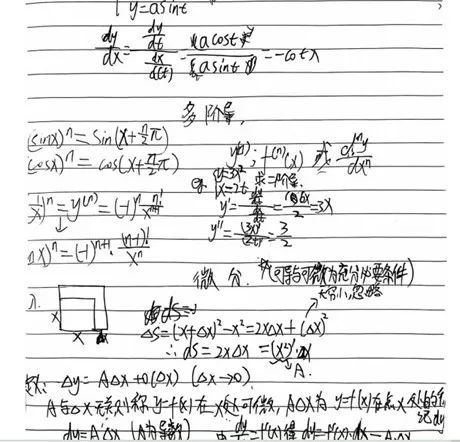 y=asint
dy/dx = (dy/dt)/(dx/d(t)) = acost/(asint) = -cotx
多阶导,
(sinx)^n = sin(x+n/2π)
(cosx)^n = cos(x+n/2π)
y^(n); f^(n)(x) 或 d^n y/dx^n
eg. y=3x²
x=2t 求二阶导.
(1/x)^n = y^(n) = (-1)^n n!/x^(n+1)
y' = 6x/2 = 3x
y'' = (3x)'/(2t)' = 3/2
(nx)^n = (-1)^(n+1) · (n-1)!/x^n
微分. (可导与可微为充分必要条件)
太小,忽略
x
x
ds=
ΔS=(x+Δx)²-x²=2xΔx+(Δx)²
∴ ds=2xΔx =(x²)'·Δx
A.
Δy=AΔx+o(Δx) (Δx→0)
A与Δx无关则称y=f(x)在x处可微, AΔx为y=f(x)在点x处的
记dy
dy=A·Δx (A为导数)
dy/dx=f'(x)得dy=f'(x)dx